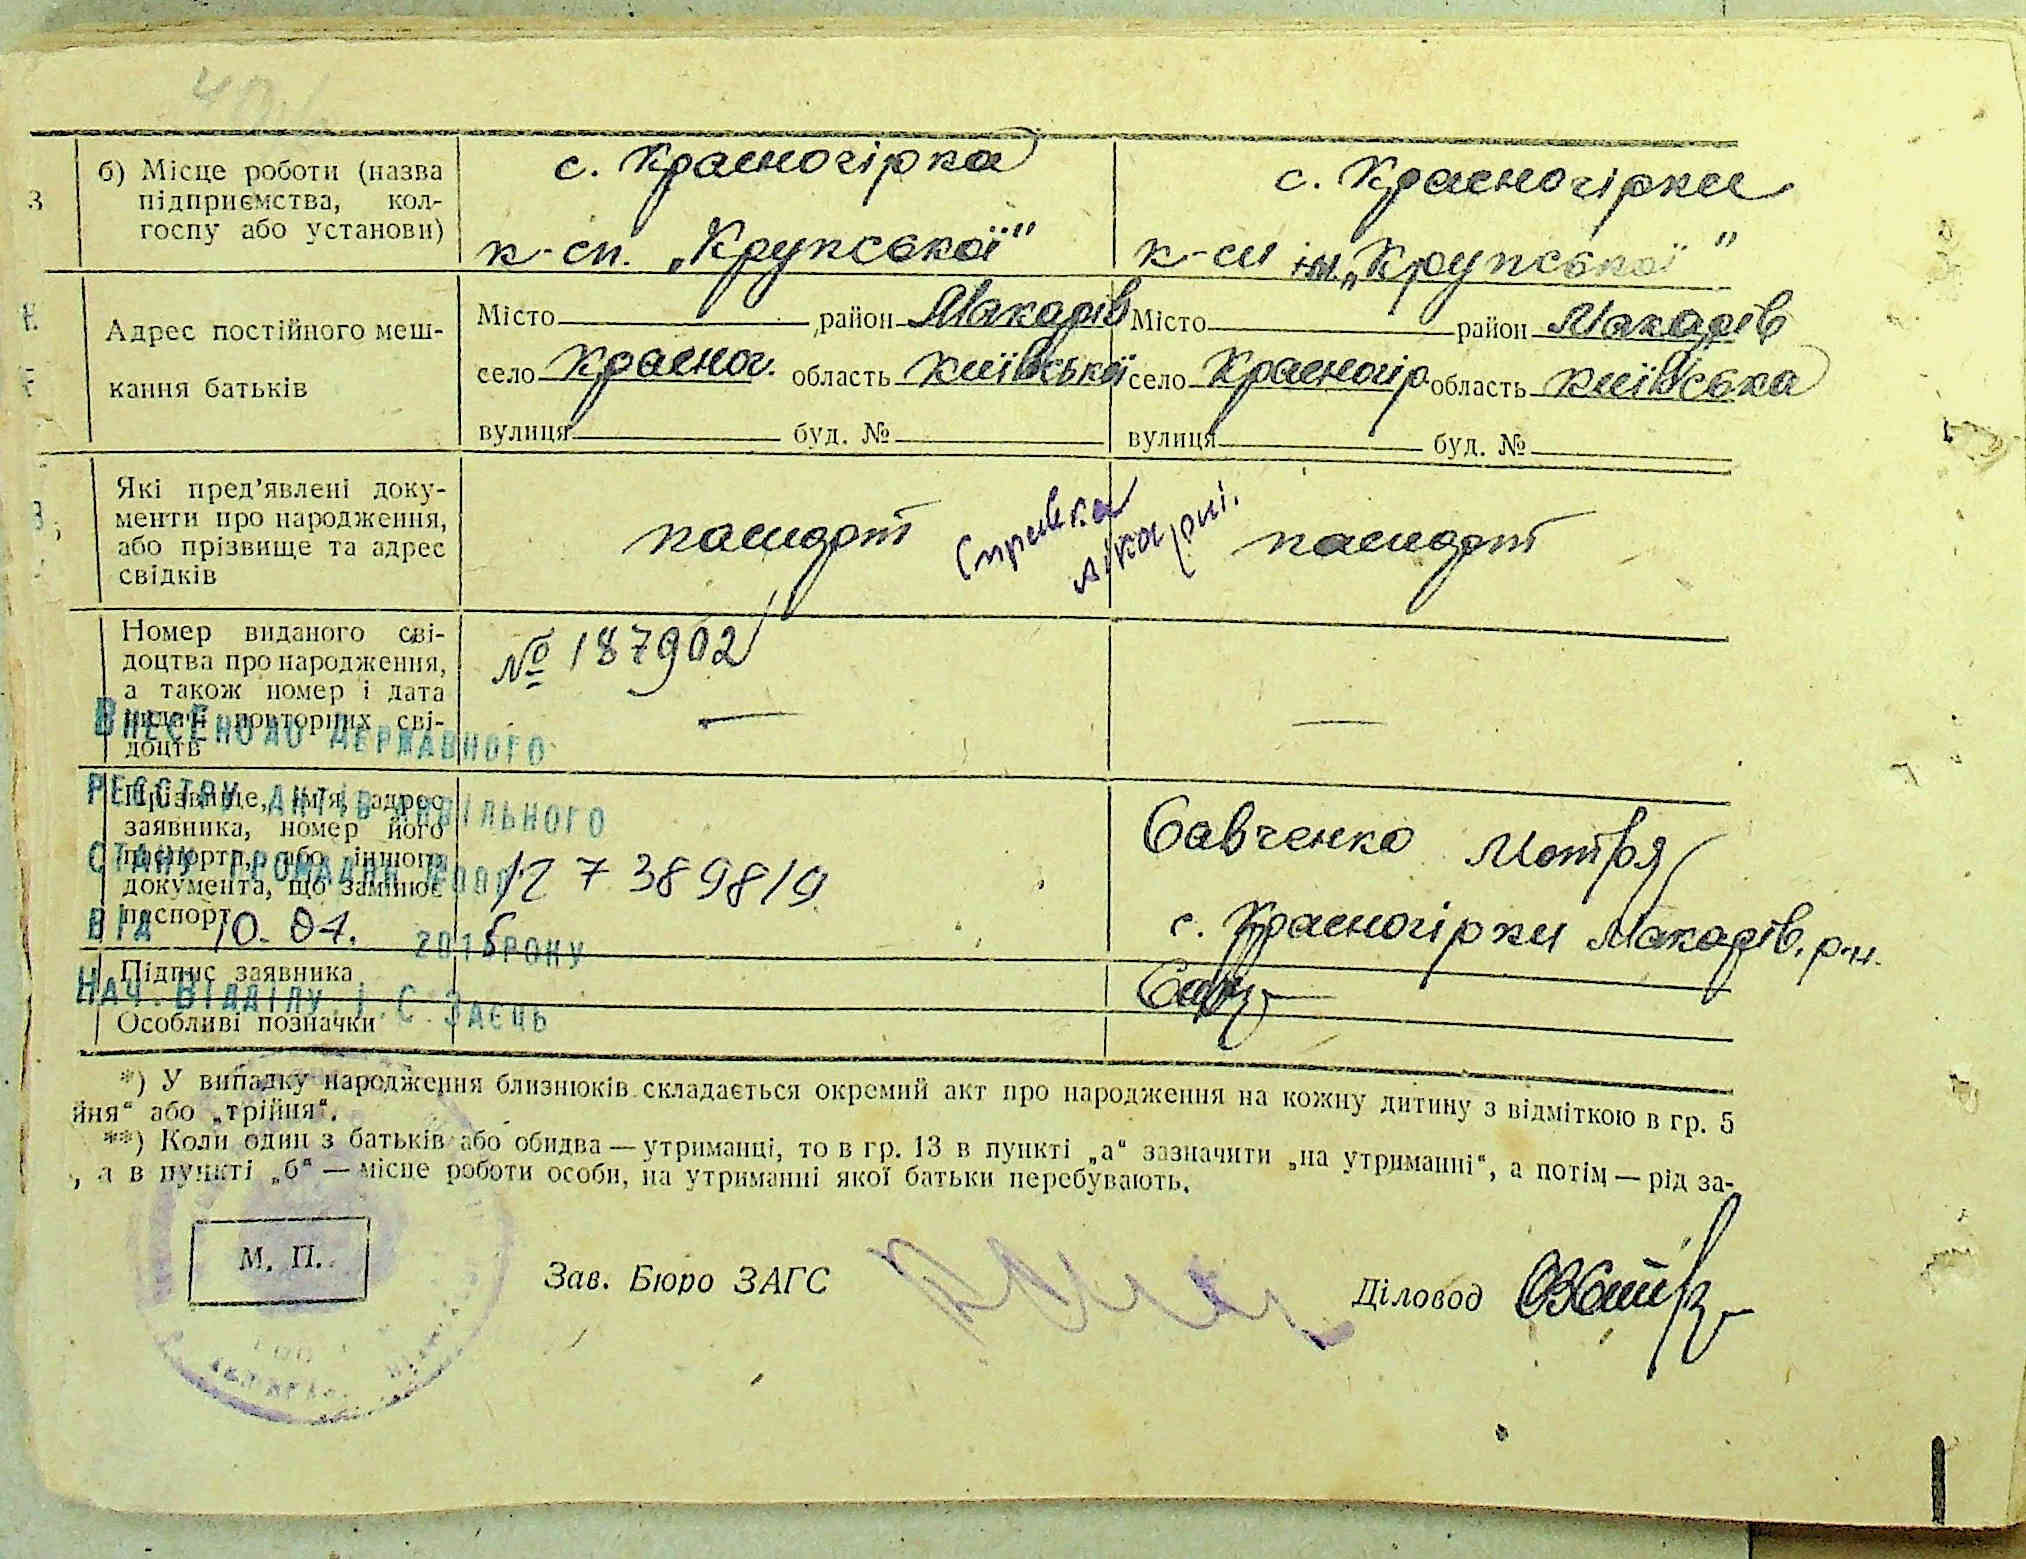 б) Місце роботи (назва
підприємства, кол-
госпу або установи)
с. Красногірка
к-сп. „Крупської"
с. Красногірки
к-сп ім. „Крупської"
Адрес постійного меш-
кання батьків
Місто район Макарів
село Красног. область Київська
вулиця буд. №
Місто район Макарів
село Красногір. область Київська
вулиця буд. №
Які пред'явлені доку-
менти про народження,
або прізвище та адрес
свідків
пашпорт
Справка
лікарні.
пашпорт
Номер виданого сві-
доцтва про народження,
а також номер і дата
видачі повторних сві-
доцтв
№ 187902
—
—
Прізвище, ім'я, адрес
заявника, номер його
паспорта, або іншого
документа, що замінює
паспорт
Савченко Мотря
с. Красногірки Макарів. р-н.
Внесено до Державного
реєстру актів цивільного
стану громадян
12 7 3898/9
від 10. 04. 2015 року
Нач. відділу І. С. Заєць
Підпис заявника
Особливі позначки
*) У випадку народження близнюків складається окремий акт про народження на кожну дитину з відміткою в гр. 5
йня" або „трійня".
**) Коли один з батьків або обидва — утриманці, то в гр. 13 в пункті „а" зазначити „на утриманні", а потім — рід за-
, а в пункті „б" — місце роботи особи, на утриманні якої батьки перебувають.
М. П.
Зав. Бюро ЗАГС
Діловод